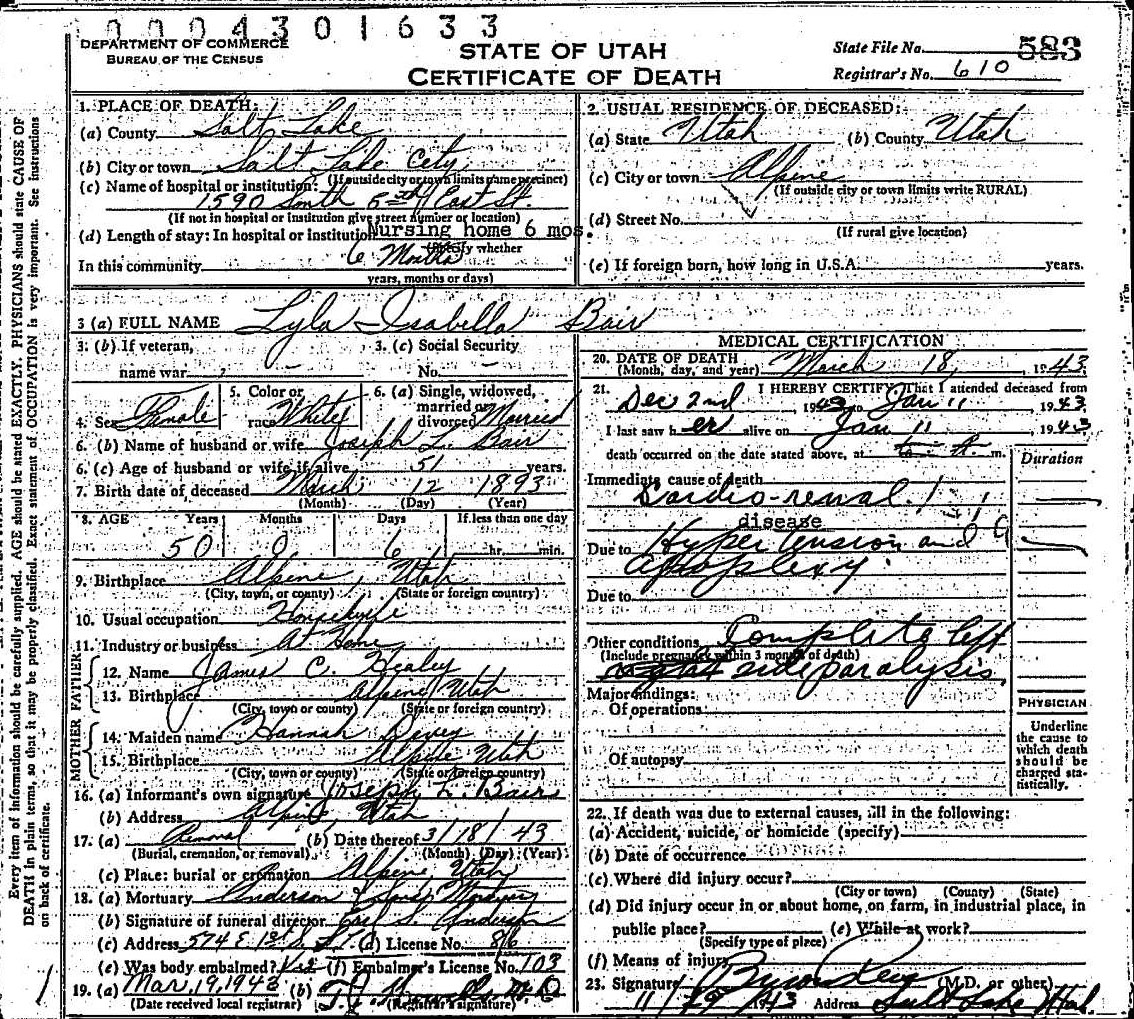 0004301633
DEPARTMENT OF COMMERCE
BUREAU OF THE CENSUS
STATE OF UTAH
CERTIFICATE OF DEATH
State File No. 583
Registrar's No. 610
Every item of information should be carefully supplied. AGE should be stated EXACTLY. PHYSICIANS should state CAUSE OF
DEATH in plain terms, so that it may be properly classified. Exact statement of OCCUPATION is very important. See instructions
on back of certificate.
1. PLACE OF DEATH:
(a) County Salt Lake
(b) City or town Salt Lake City
(If outside city or town limits name precinct)
(c) Name of hospital or institution:
1590 South 5th East St
(If not in hospital or institution give street number or location)
(d) Length of stay: In hospital or institution Nursing home 6 mos.
(Specify whether
In this community 6 Months
years, months or days)
2. USUAL RESIDENCE OF DECEASED:
(a) State Utah (b) County Utah
(c) City or town Alpine
(If outside city or town limits write RURAL)
(d) Street No.
(If rural give location)
(e) If foreign born, how long in U.S.A. years.
3 (a) FULL NAME Lyla Isabella Bair
3. (b) If veteran, 3. (c) Social Security
name war - No. -
4. Sex Female 5. Color or race White 6. (a) Single, widowed, married or divorced Married
6. (b) Name of husband or wife Joseph L. Bair
6. (c) Age of husband or wife if alive 51 years.
7. Birth date of deceased March 12 1893
(Month) (Day) (Year)
8. AGE Years Months Days If less than one day
50 0 6 hr. min.
9. Birthplace Alpine, Utah
(City, town, or county) (State or foreign country)
10. Usual occupation Housewife
11. Industry or business At Home
FATHER
12. Name James C. Healey
13. Birthplace Alpine Utah
(City, town or county) (State or foreign country)
MOTHER
14. Maiden name Hannah Devey
15. Birthplace Alpine Utah
(City, town or county) (State or foreign country)
16. (a) Informant's own signature Joseph L. Bair
(b) Address Alpine, Utah
17. (a) Removal (b) Date thereof 3/18/43
(Burial, cremation, or removal) (Month) (Day) (Year)
(c) Place: burial or cremation Alpine, Utah
18. (a) Mortuary Anderson & Sons Mortuary
(b) Signature of funeral director Earl S. Anderson
(c) Address 574 E. 1st S. (d) License No. 86
(e) Was body embalmed? Yes (f) Embalmer's License No. 103
19. (a) Mar. 19, 1943 (b) M.D.
(Date received local registrar) (Registrar's signature)
MEDICAL CERTIFICATION
20. DATE OF DEATH March 18, 1943
(Month, day, and year)
21. I HEREBY CERTIFY, That I attended deceased from
Dec 2nd, 1943 to Jan 11, 1943
I last saw her alive on Jan 11, 1943
death occurred on the date stated above, at m.
Duration
Immediate cause of death
Cardio-renal
disease
Due to Hypertension and
apoplexy
Due to
Other conditions Complete left
(Include pregnancy within 3 months of death)
side paralysis
Major findings:
Of operations
Of autopsy
PHYSICIAN
Underline
the cause to
which death
should be
charged sta-
tistically.
22. If death was due to external causes, fill in the following:
(a) Accident, suicide, or homicide (specify)
(b) Date of occurrence
(c) Where did injury occur?
(City or town) (County) (State)
(d) Did injury occur in or about home, on farm, in industrial place, in
public place? (e) While at work?
(Specify type of place)
(f) Means of injury
23. Signature (M.D. or other)
1943 Address Salt Lake Utah